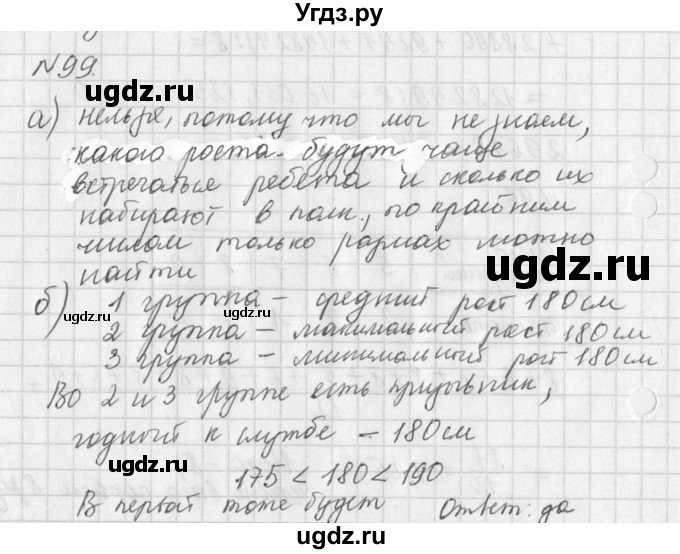 Угдз.ру
+ 28896 + 9241 + 148241 : 8 =
N 99.
а) нельзя, потому что мы не знаем,
какого роста будут чаще
встречаться ребята и сколько их
набирают в полк, по крайним
числом только размах можно
найти
б) 1 группа – средний рост 180 см
2 группа – максимальный рост 180 см
3 группа – минимальный рост 180 см
Во 2 и 3 группе есть призывник,
годный к службе – 180 см
175 < 180 < 190
В первой тоже будет Ответ: да
ugdz.ru
ugdz.ru
ugdz.ru
ugdz.ru
ugdz.ru
ugdz.ru
ugdz.ru
©ugdz.ru